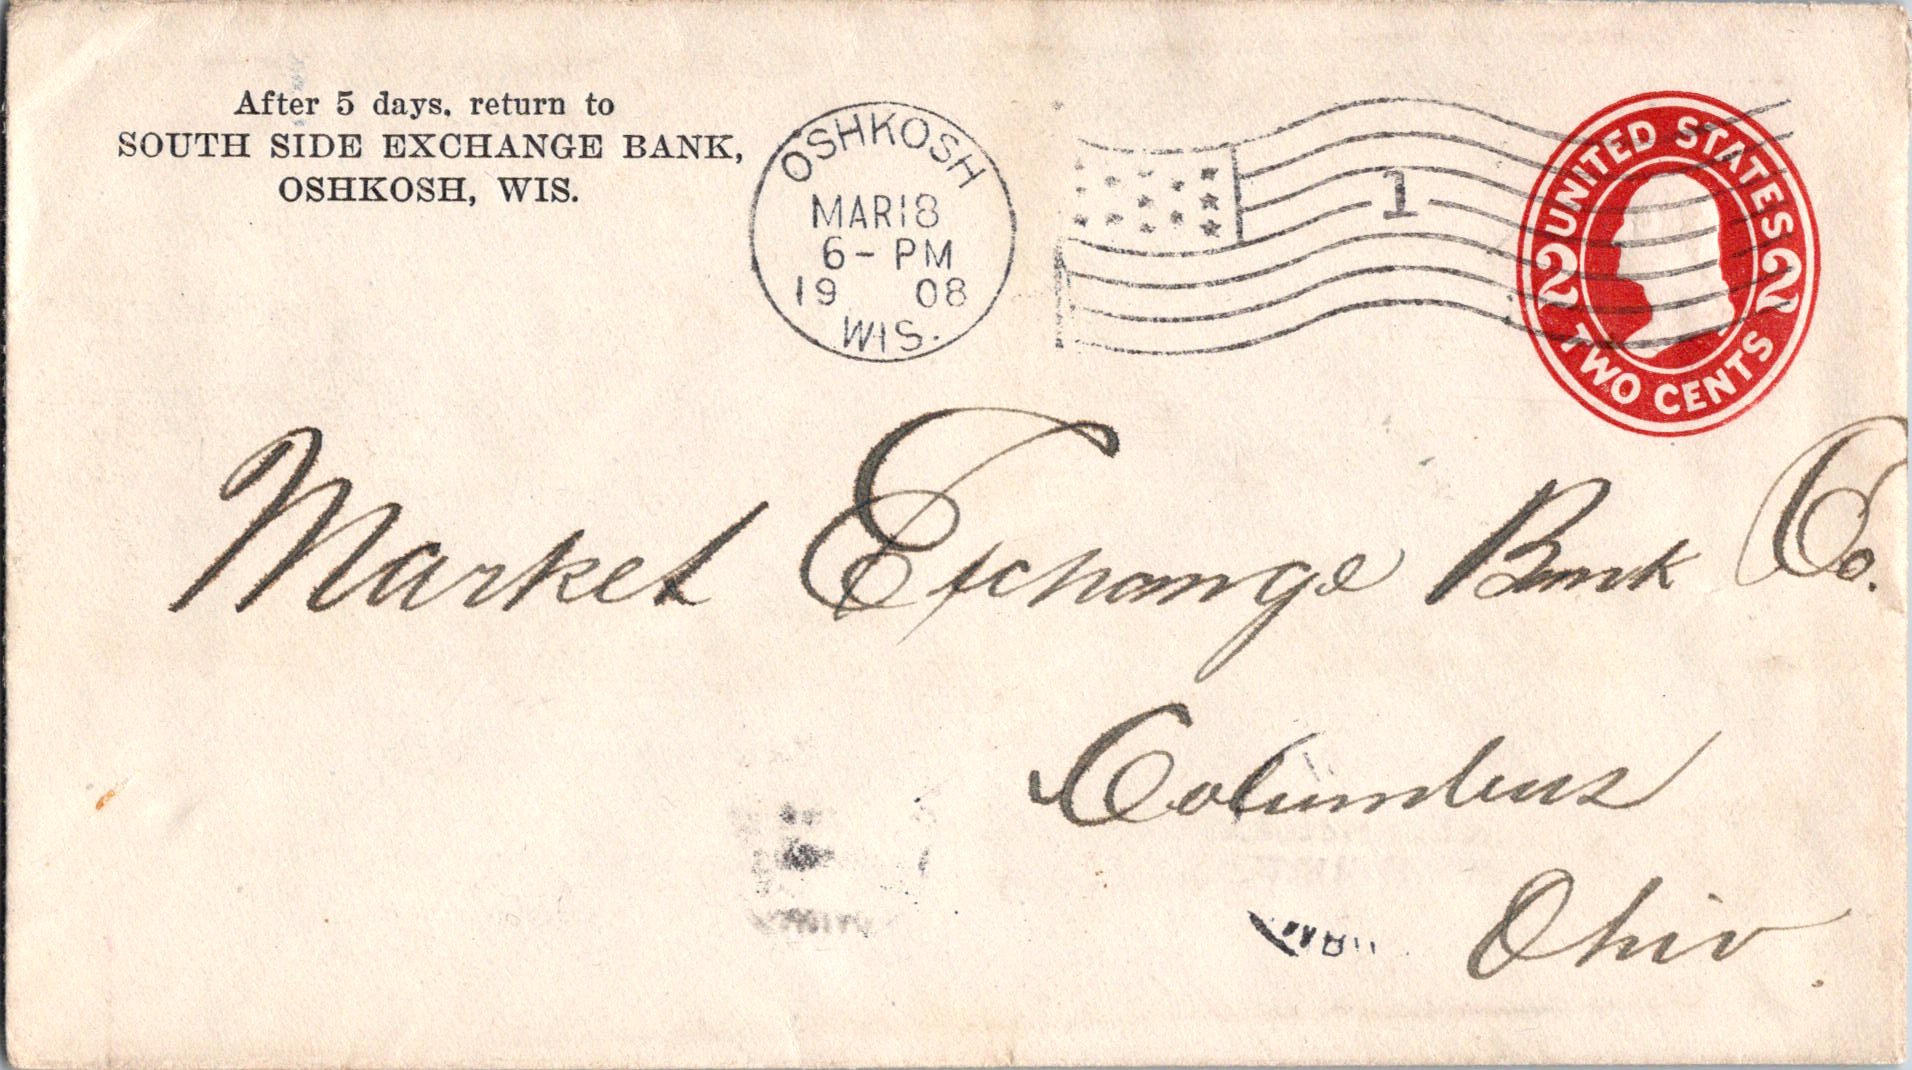 After 5 days, return to
SOUTH SIDE EXCHANGE BANK,
OSHKOSH, WIS.
OSHKOSH
MAR 18
6 - PM
19 08
WIS.
1
UNITED STATES
2 2
TWO CENTS
Market Exchange Bank Co.
Columbus
Ohio.